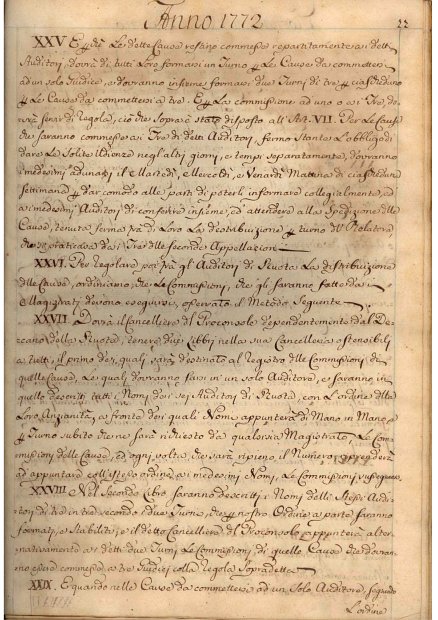 Anno 1772
22
XXV E perchè Le dette Cause restano commesse repartitamente a i detti
Auditori, dovrà di tutti Loro formarsi un Turno per Le Cause da commettersi
ad un solo Giudice, e dovranno inoltre formarsi due Turni di tre per ciascheduno
per Le Cause da commettersi a tre. E per La commissione ad uno o a i Tre do-
vrà servir di Regola, ciò che sopra è stato disposto all'Art. VII. Per Le Cause
che saranno commesse a i Tre di detti Auditori, fermo stante L'obbligo di
dare Le solite Udienze negl'altri giorni, e tempi separatamente, dovranno
i medesimi adunarsi il Martedì, Mercoldì, e Venardì Mattina di ciascheduna
settimana per dar comodo alle parti di poterli informare collegialmente, ed
a i medesimi Auditori di conferire insieme, ed attendere alla spedizione delle
Cause, tenuta ferma frà di Loro La distribuzione per turno del Relatore
che si pratica da i Tre delle seconde Appellazioni
XXVI. Per regolare poi frà gl'Auditori di Ruota La distribuzione
delle Cause, ordiniamo, che Le Commissioni, che gli saranno fatte da i
Magistrati devino eseguirsi, osservato il Metodo seguente
XXVII Dovrà il Cancelliere del Proconsolo dependentemente dal De-
cano della Ruota, tenere due Libri nella sua Cancelleria ostensibili
a tutti, il primo dei quali sarà destinato al Registro delle Commissioni di
quelle Cause, Le quali dovranno farsi in un solo Auditore, e saranno in
quello descritti tutti i Nomi dei sei Auditori di Ruota, con L'ordine della
Loro Anzianità, a fronte dei quali Nomi appunterà di Mano in Mano, e
per Turno subito che ne sarà richiesto da qualsisia Magistrato Le Com-
missioni delle Cause, ed ogni volta che sarà ripieno il Numero, riprenderà
ad appuntare coll'istesso ordine a i medesimi Nomi, Le Commissioni sussequenti.
XXVIII Nel secondo Libro, saranno descritti i Nomi delli stessi Audi-
tori di tre in tre secondo i due Turni, che per nostro Ordine a parte saranno
formati, e stabiliti, e il detto Cancelliere del Proconsolo appunterà alter-
nativamente a i detti due Turni Le Commissioni, di quelle Cause che dovran-
no esser commesse a tre Giudici colla Regola sopradetta
XXIX. E quando nelle Cause da commettersi ad un solo Auditore, seguendo
L'ordine